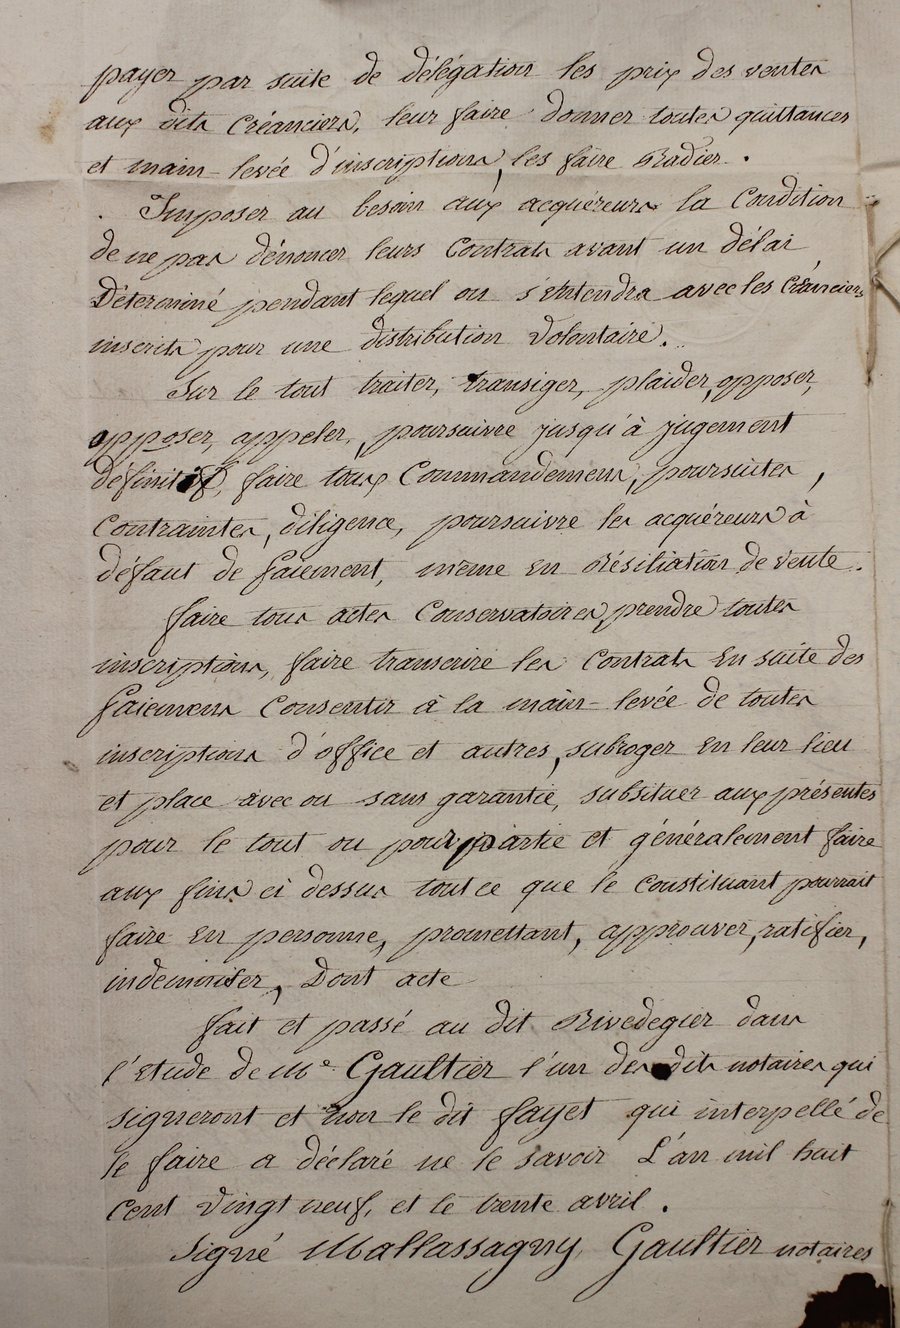 payer par suite de délégation les prix des ventes
aux dits Créanciers, leur faire donner toutes quittances
et main-levée d'inscriptions, les faire Radier.
Imposer au besoin aux acquéreurs la Condition
de ne pas dénoncer leurs Contrats avant un délai
Déterminé pendant lequel on s'entendra avec les Créanciers
inscrits pour une distribution Volontaire.
Sur le tout traiter, transiger, plaider, opposer,
opposer, appeler, poursuivre jusqu'à jugement
définitif, faire toux Commandemens, poursuites,
Contraintes, diligence, poursuivre les acquéreurs à
défaut de faiement, même en Résiliation de vente.
faire tous actes Conservatoires, prendre toutes
inscriptions, faire transcrire les Contrats En suite des
faiemens Consentir à la main-levée de toutes
inscriptions d'office et autres, subroger en leur lieu
et place avec ou sans garantie, subsituer aux présentes
pour le tout ou pour partie et généralement faire
aux fins ci dessus tout ce que le Constituant pourrait
faire En personne, promettant, approuver, ratifier,
indemniser, Dont acte
fait et passé au dit Rivedegier dans
l'Etude de Me Gaultier l'un des dits notaires qui
signeront et non le dit fayet qui interpellé de
le faire a déclaré ne le savoir L'an mil huit
Cent Vingt neuf, et le trente avril.
Signé Mallassagny, Gaultier notaires